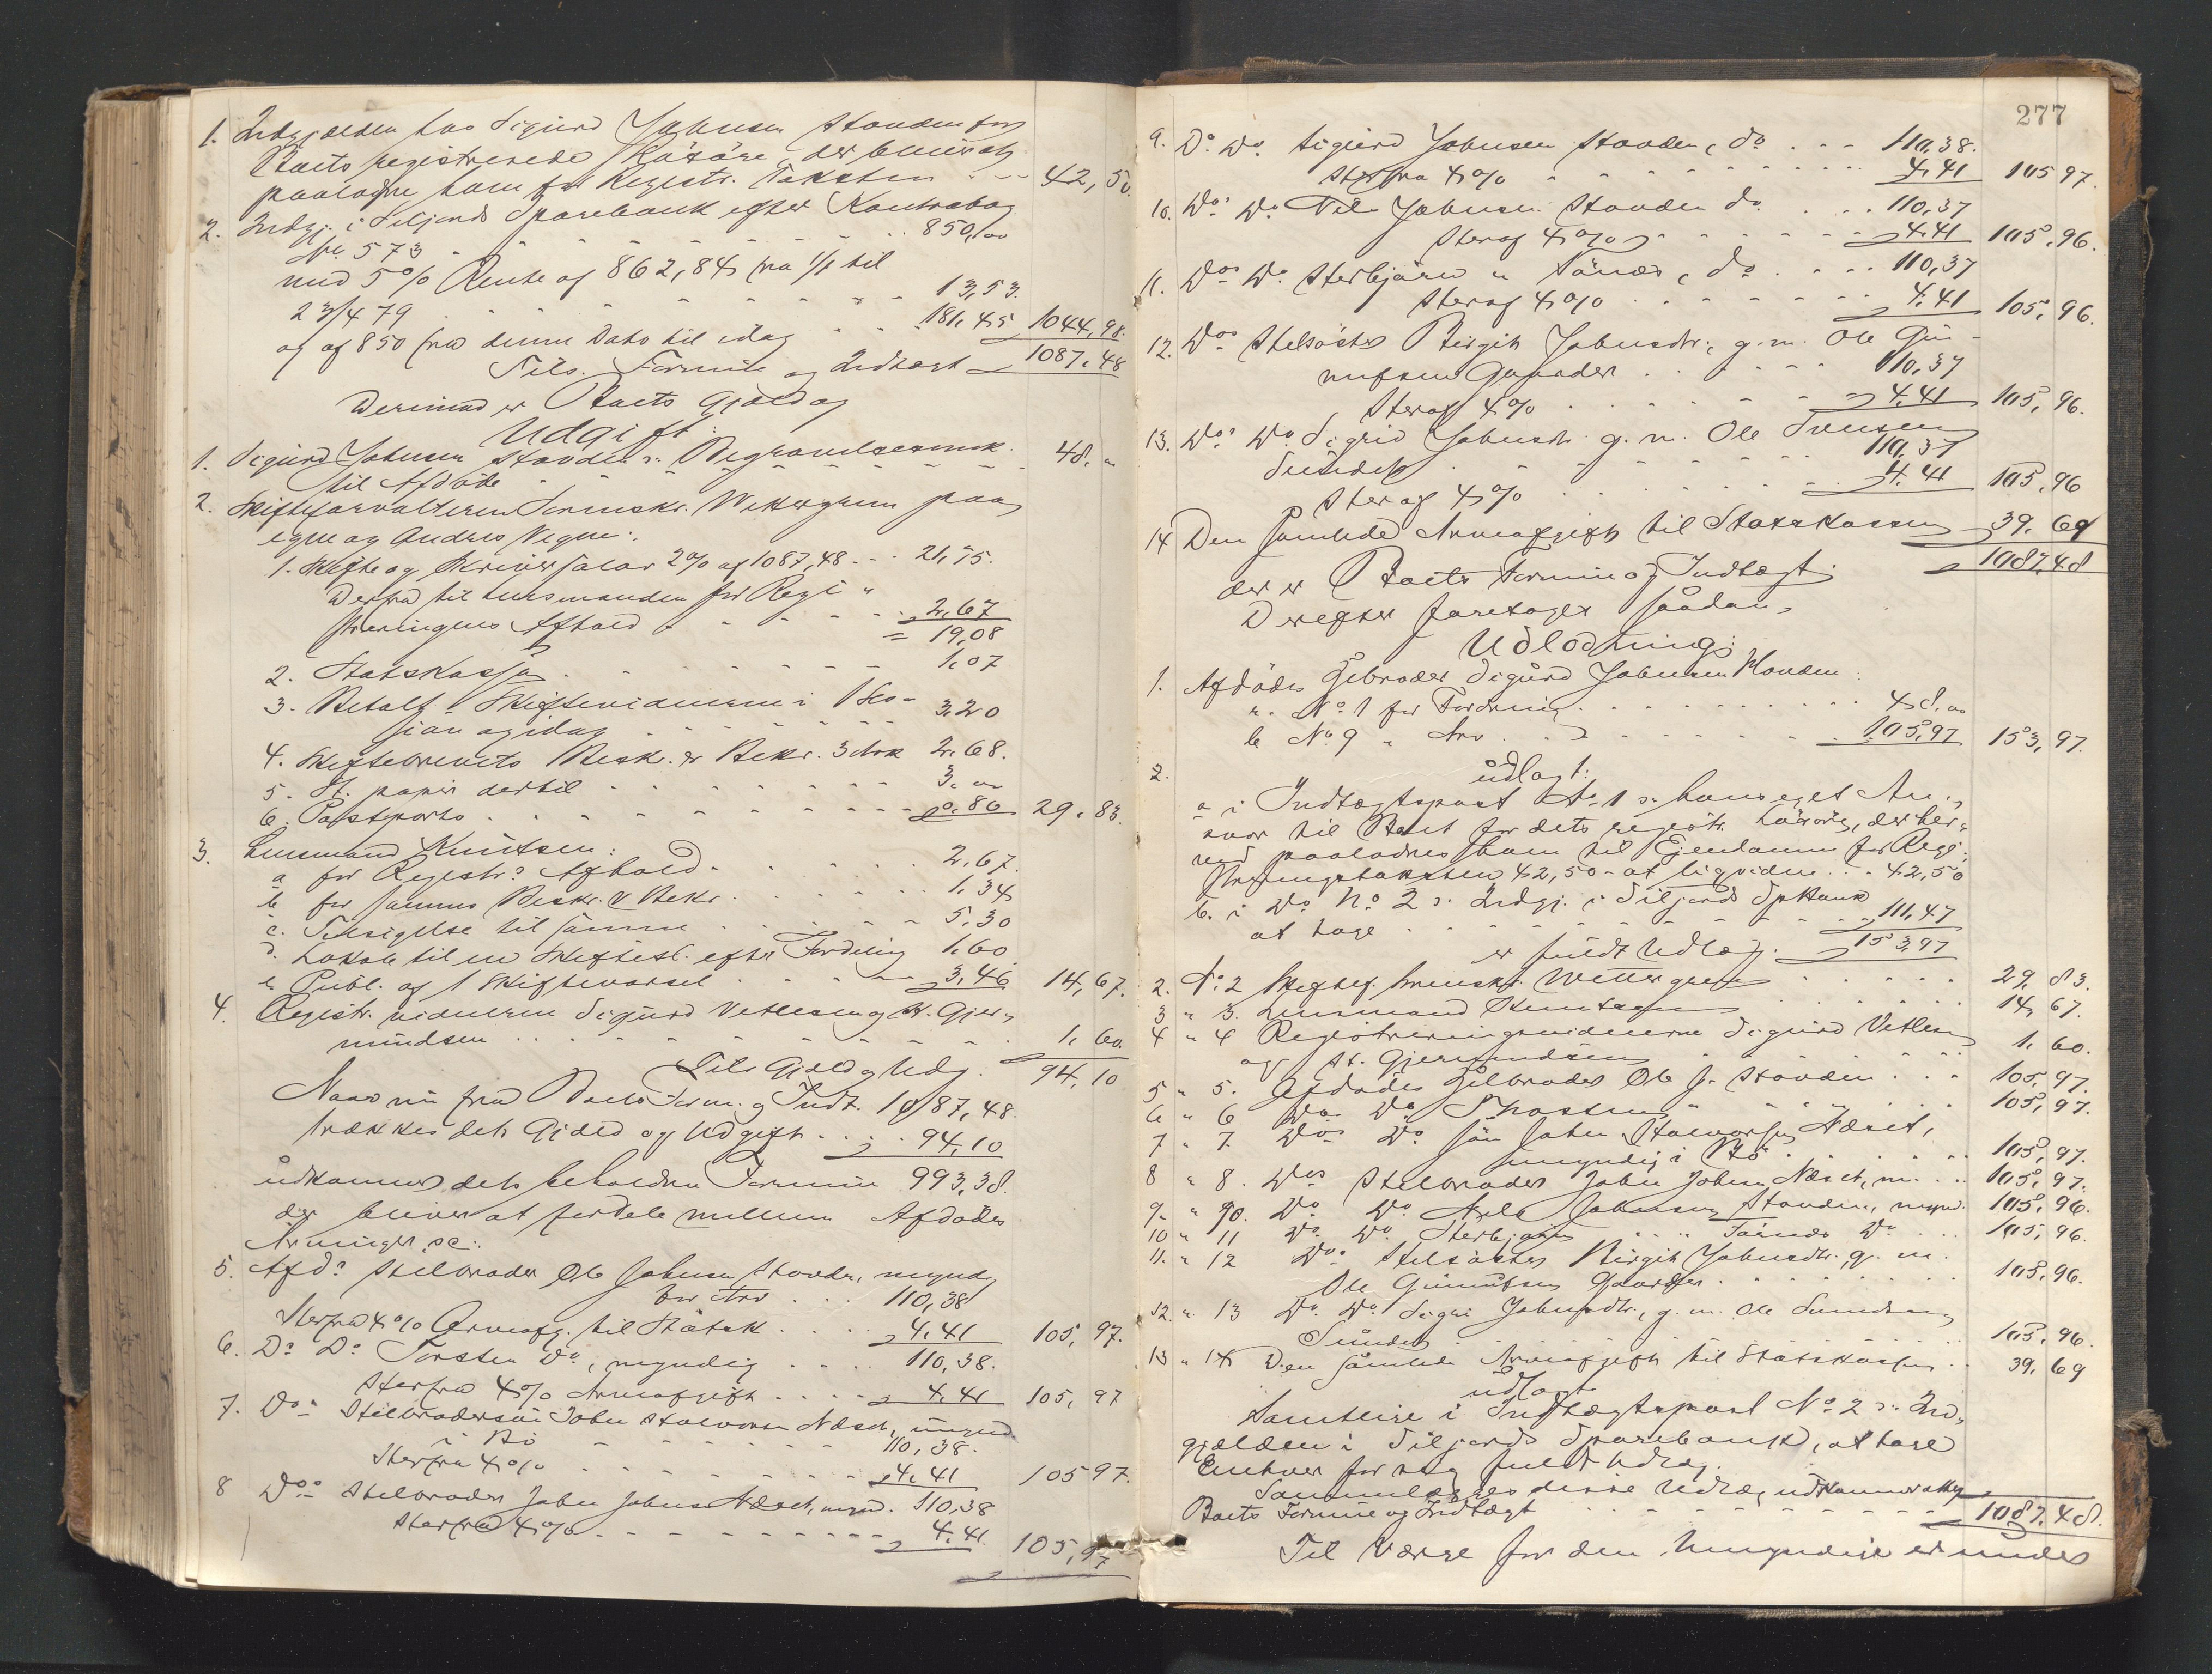 1. Indgjælden hos Sigurd Johnsen Standen for
Boets registrerede Løsøre, der bliver at
paalægne ham for Registr. Taksten - - 42,50.
2. Indgj. i Siljords Sparebank efter Kontrabog
No 573 - - - - - - 850,00
med 5% Rente af 862,84 fra 1/1 til
23/4 79 - - - - - 13,53.
og af 850 fra denne Dato til idag - - 181,45 1044,98.
Tils. Formue og Indtægt 1087,48
Derimod er Boets Gjæld og
Udgift:
1. Sigurd Johnsen Standen: Begravelsesomk.
til Afdøde - - - - - 48. "
2. Skifteforvalteren Sorenskr. Wettergreen paa
egne og Andres Vegne:
1. Skifte og Skriversalær 2% af 1087,48 - - 21,75.
Derfra til Lensmanden for Regi-
streringens Afhold - - - - - 2,67
= 19,08
2. Statskassen - - - - - 1,07
3. Betalt Skiftevidnerne i
og idag - - - - - 3,20
4. Skiftebrevets Besk. & Bekr. 3 Ark 2,68.
5. St. papir dertil - - - - - 3. "
6. Postporto - - - - - 0,80 29,83.
3. Lensmand Knutsen:
a for Registr.s Afhold - - - - 2,67.
b for sammes Beskr. & Bekr. - - - 1,34
c. Tilsigelse til samme - - - - 5,30
d. Lokale til en Skiftesl. efter Fordeling 1,60
e Publ. af 1 Skiftevarsel - - - 3,46 14,67.
4. Registr. vidnerne Sigurd Vetlesen og H. Gjer-
mundsen - - - - - 1,60.
Tils. Gjæld og Udg. 94,10
Naar nu fra Boets Form. og Indt. 1087,48.
trækkes dets Gjæld og Udgift - - 94,10
udkommer dets beholdne Formue 993,38.
der bliver at fordele mellem Afdødes
Arvinger sc:
5. Afd.s Helbroder Ole Johnsen Standen, myndig
bør Arv - - 110,38
Herfra 4% Arveafg. til Statsk. - - 4,41 105,97.
6. Do Do Torsten Do, myndig - - - 110,38.
Herfra 4% Arveafgift - - - 4,41 105,97
7. Dos Helbrodersøn John Halvorsen Næset, umynd.
i Bø - - - - - 110,38.
Herfra 4% - - - - - 4,41 105 97.
8 Dos Helbroder John Johnsen Næset, mynd. 110,38
Herfra 4% - - - - - 4,41. 105,97
277
9. Do Do Sigurd Johnsen Standen, do - - - 110,38.
Herfra 4% - - - - - 4,41 105 97.
10. Do Do Nils Johnsen Standen do - - - 110,37
Heraf 4% - - - - - 4,41 105,96.
11. Dos Do Herbjørn " Tånæs, do - - - 110,37
Heraf 4% - - - - - 4,41 105,96.
12. Dos Helsøster Birgit Johnsdtr., g. m. Ole Gun-
nufsen Gaarder - - - - - 110,37
Heraf 4% - - - - - 4,41 105,96.
13. Dos Do Sigrid Johnsdtr. g. m. Ole Svensen
Sundet - - - - - 110,37
Heraf 4% - - - - - 4,41 105,96
14 Den samlede Arveafgift til Statskassen 39,69
der er Boets Formue og Indtægt 1087,48
Derefter foretages saadan
Udlodning:
1. Afdødes Helbroder Sigurd Johnsen Standen:
a. No 1 for Fordring - - - - - 48. "
b No 9 " Arv - - - - - 105,97 153,97.
udlagt:
2.
a i Indtægtspost No 1 : hans eget An-
svar til Boet for dets registr. Løsøre, der her-
ved paalodnes ham til Ejendom for Regi-
streringstaksten 42,50 - at liqvidere - - 42,50
b. i Do No 2 : Indgj. i Siljords SpBank
at tage - - - - - 111,47
er fuldt Udlæg. 153,97
2. No 2 Skiftef. Sorenskr. Wettergreen - - - - 29,83.
3 " 3. Lensmand Knutsen - - - - - 14,67.
4 " 4 Registreringsvidnerne Sigurd Vetlesen
og H. Gjermundsen - - - - - 1,60.
5 " 5. Afdødes Helbroder Ole J. Standen - - - 105,97.
6 " 6 Do Do Thorsten " " " - - - 105,97.
7 " 7. Dos Do søn John Halvorsen Næset,
umyndig i Bø - - - - - 105,97.
8 " 8. Dos Helbroder John Johnsen Næset, m. - - 105,97.
9 " 90. Do Do Nils Johnsen Standen, mynd. 105,96.
10 " 11 Do Do Herbjørn " Tånæs Do - - 105,96.
11. " 12 Dos Helsøster Birgit Johnsdtr. g. m.
Ole Gunnufsen Gaarder - - - - - 105,96.
12. " 13 Do Do Sigri Johnsdtr., g. m. Ole Svendsen
Sundet - - - - - 105,96.
13 " 14 Den samlede Arveafgift til Statskassen - - 39,69
udlagt
Samtlige i Indtægtspost No 2 : Ind-
gjælden i Siljords Sparebank, at tage
Enhver for sig fuldt Udlæg.
Sammenlægges disse Udlæg udkommer atter
Boets Formue og Indtægt - - - - - 1087,48.
Til Værge for den Umyndige er under